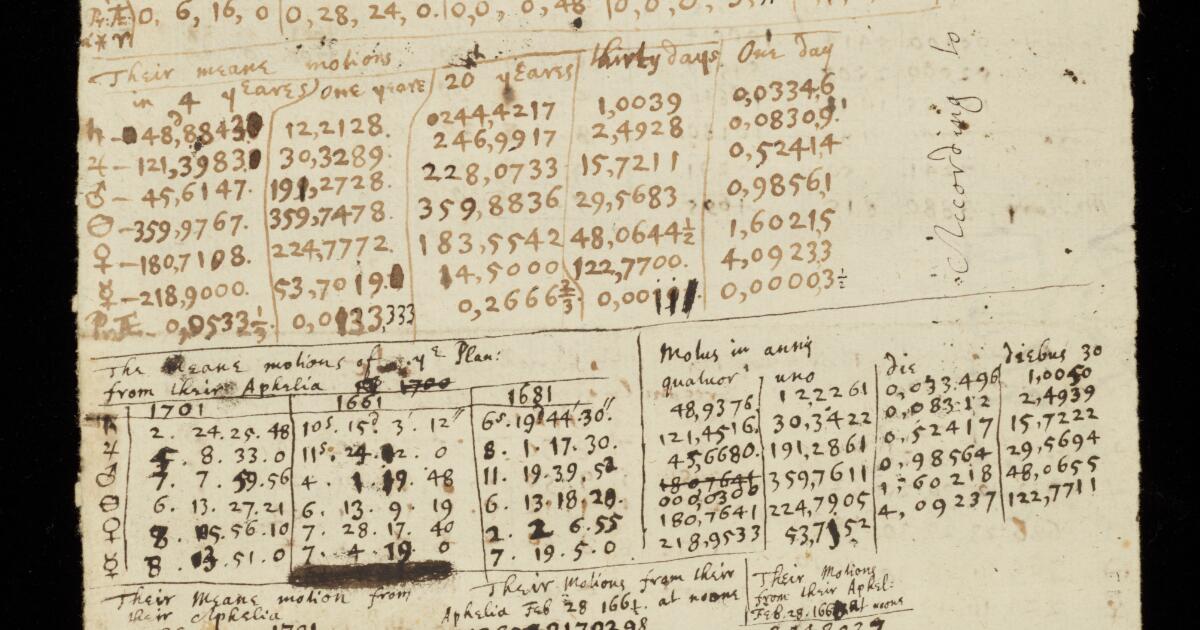 Pr. Æ. 0, 6, 16, 0 | 0, 28, 24, 0. | 0,0, 0,48
à * ♈
Their meane motions
in 4 yeares) one yeare 20 yeares thirty days One day
♄ – 48,8843 12,2128. 0244,4217 1,0039 0,03346
♃ – 121,3983 30,3289. 246,9917 2,4928 0,08309
♂ – 45,6147. 191,2728. 228,0733 15,7211 0,52414
⊖ – 359,9767. 359,7478. 359,8836 29,5683 0,98561
♀ – 180,7108. 224,7772. 183,5542 48,0644½ 1,60215
☿ – 218,9000. 53,7019. 14,5000 122,7700. 4,09233
Pr. Æ – 0,0533⅓. 0,0133,333 0,2666⅔ 0,00111 0,00003½
According to
The Meane motions of yᵉ Plan:
from their Aphelia
1701 1661 1681
♄ 2. 24. 25. 48 10ˢ. 15°. 3'. 12" 6ˢ. 19° 44'. 30".
♃ 8. 33. 0 11ˢ. 24. 0 8. 1. 17. 30.
♂ 7. 7. 59. 56 4. 1. 19. 48 11. 19. 39. 52
⊖ 6. 13. 27. 21 6. 13. 9. 19 6. 13. 18. 20.
♀ 8. 15. 56. 10 7. 28. 17. 40 2. 2. 6. 55
☿ 8. 13. 51. 0 7. 4. 19. 0 7. 19. 5. 0
Motus in annis
quatuor uno die diebus 30
48,9376. 12,2261 0,033496 1,0050
121,4516. 30,3422 0,08312 2,4939
45,6680. 191,2861 0,52417 15,7222
1807641
000,0300 359,7611 0,98564 29,5694
180,7641 224,7905 1,60218 48,0655
218,9533 53,7152 4,09237 122,7711
Their Meane motion from
their Aphelia
Their Motions from their
Aphelia Feb 28 166 at noone
Their Motions
from their Aphel:
Feb. 28. 166 at noone